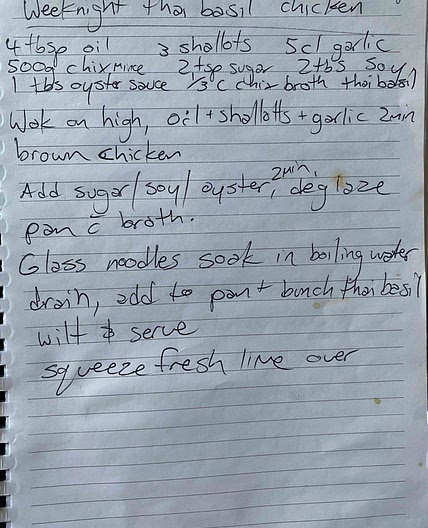 Weeknight thai basil chicken
4 tbsp oil 3 shallots 5cl garlic
500g chix mince 2 tsp sugar 2 tbs soy
1 tbs oyster sauce 1/3 c chix broth thai basil
Wok on high, oil + shallotts + garlic 2min
brown chicken
Add sugar/soy/oyster, 2min, deglaze
pan c̄ broth.
Glass noodles soak in boiling water
drain, add to pan + bunch thai basil
wilt & serve
squeeze fresh lime over